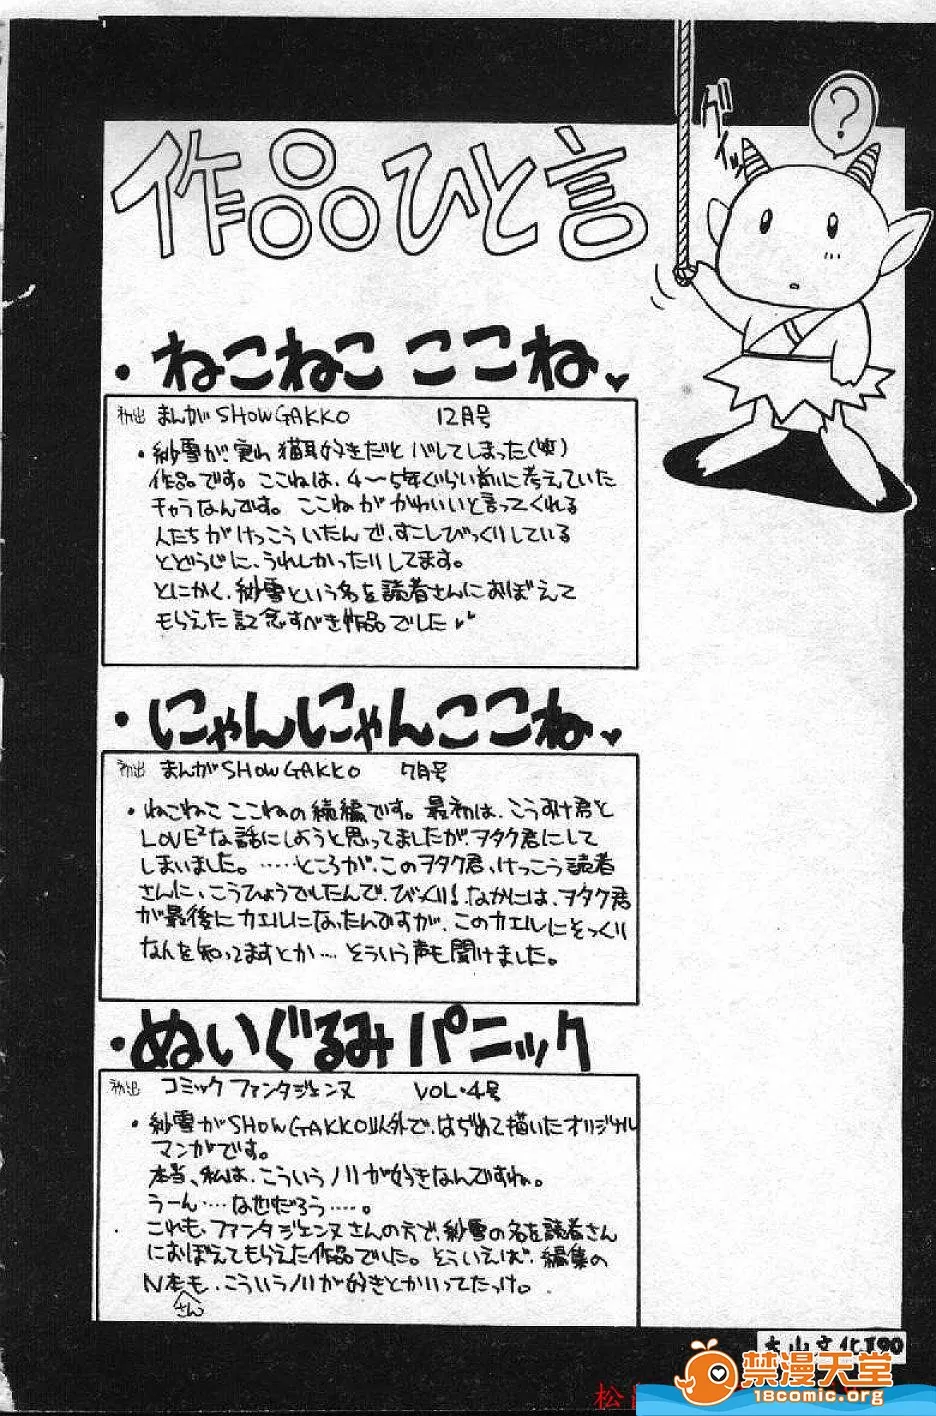 作品ひと言
グイッ
?
・ねこねこ ここね♥
初出 まんがSHOW GAKKO 12月号
・紗雪が、実わ 猫耳好きだと バレてしまった(笑)
作品です。ここねは、4〜5年ぐらい前に考えていた
キャラなんです。ここねが かわいいと言ってくれる
人たちが けっこういたんで、すこしびっくりしている
とどうじに、うれしかったりしてます。
とにかく、紗雪という名を読者さんにおぼえて
もらえた記念すべき作品でした♥
・にゃんにゃんここね♥
初出 まんがSHOW GAKKO 7月号
・ねこねこ ここねの続編です。最初は、こうすけ君と
LOVE²な話にしようと思ってましたが、ヲタク君にして
しまいました。……ところが、このヲタク君、けっこう読者
さんに、こうひょうでしたんで、びっくり!なかには、ヲタク君
が最後にカエルになったんですが、このカエルにそっくり
なんを知ってますとか…. そういう声も聞けました。
・ぬいぐるみパニック
初出 コミックファンタジェンヌ VOL・4号
・紗雪がSHOW GAKKO以外で、はぢめて描いたオリジナル
マンガです。
本当、私は、こういうノリが好きなんですね。
うーん…. なぜだろう……。
これも、ファンタジェンヌさんの方で、紗雪の名を読者さん
におぼえてもらえた作品でした。そういえば、編集の
N本さんも、こういうノリが好きとかいってたっけ。
大山文化190
禁漫天堂
18comic.org